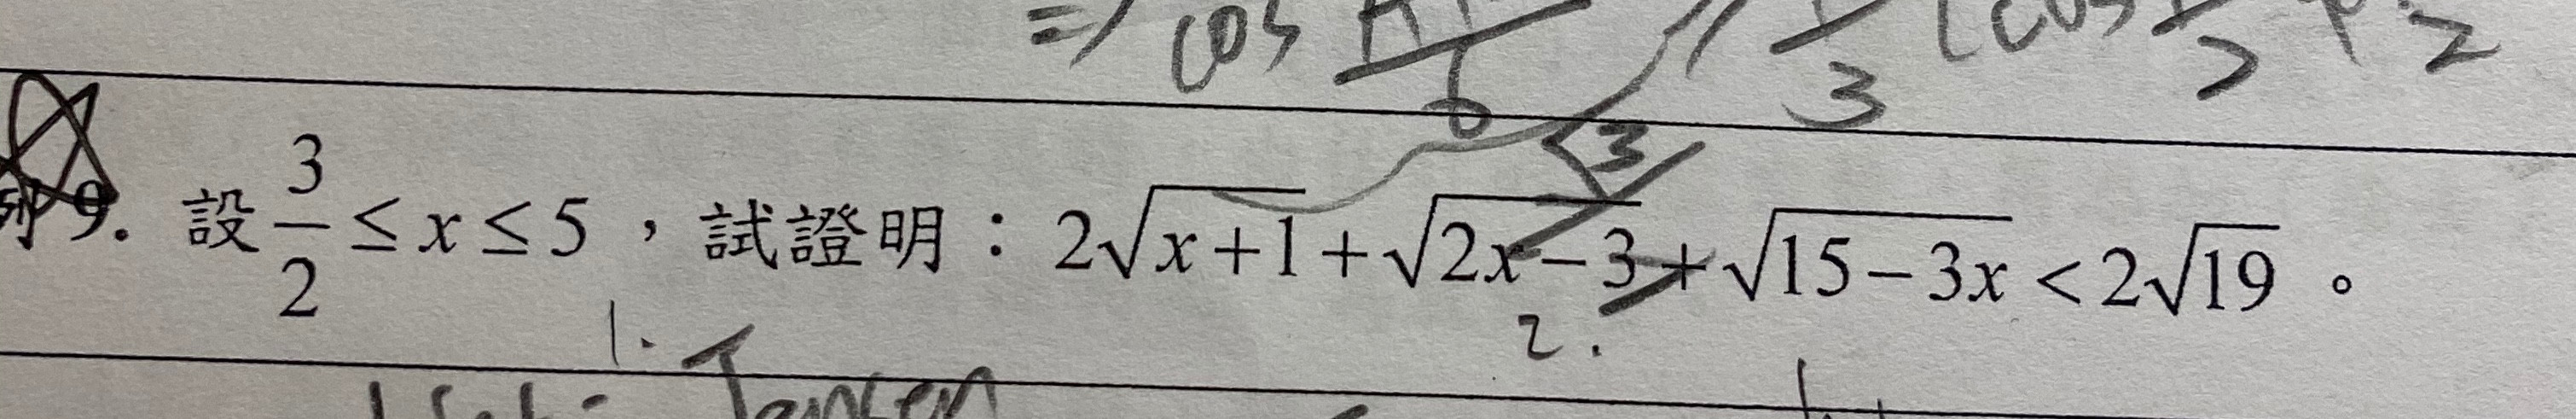 => cos π/6 1/3 (cos
例 9. 設 3/2 ≤ x ≤ 5,試證明:2√(x+1) + √(2x−3) + √(15−3x) < 2√19 。
3
1. 2.
Jensen